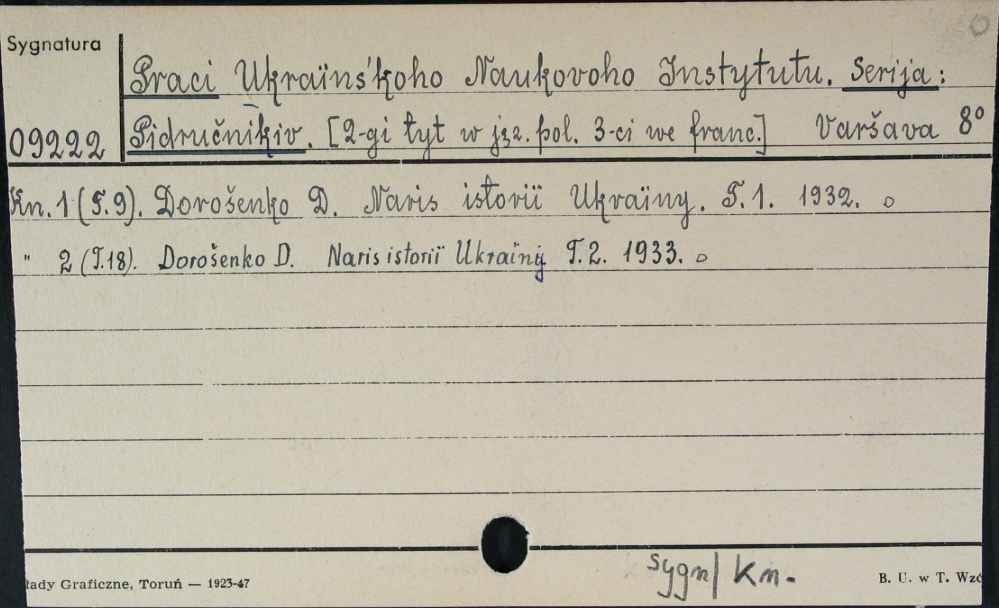 Sygnatura
Praci Ukraïns'koho Naukovoho Instytutu. Serija:
09222 Pidručnikiv. [2-gi tyt w jęz. pol. 3-ci we franc.] Varšava 8°
Kn. 1 (T.9). Dorošenko D. Naris istoriï Ukraïny. T. 1. 1932.
" 2 (T.18). Dorošenko D. Naris istoriï Ukraïny T. 2. 1933.
sygn/ Kn.
łady Graficzne, Toruń — 1923-47 B. U. w T. Wzó